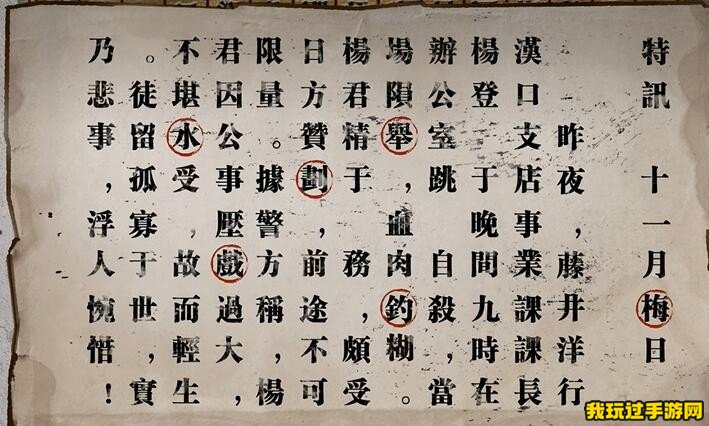 特訊 十一月梅日
昨夜，藤井洋行
漢口支店事業課課長
楊登 于晚間九時在
辦公室跳 自殺，當
場隕舉，血肉釣糊。
楊君精于 務，頗受
日方贊劃，前途，不可
限量。據警，方稱，楊
君因公事壓戲過大，
不堪水受，故而輕生
。徒留孤寡于世，實
乃悲事，浮人惋惜！
我玩过手游网